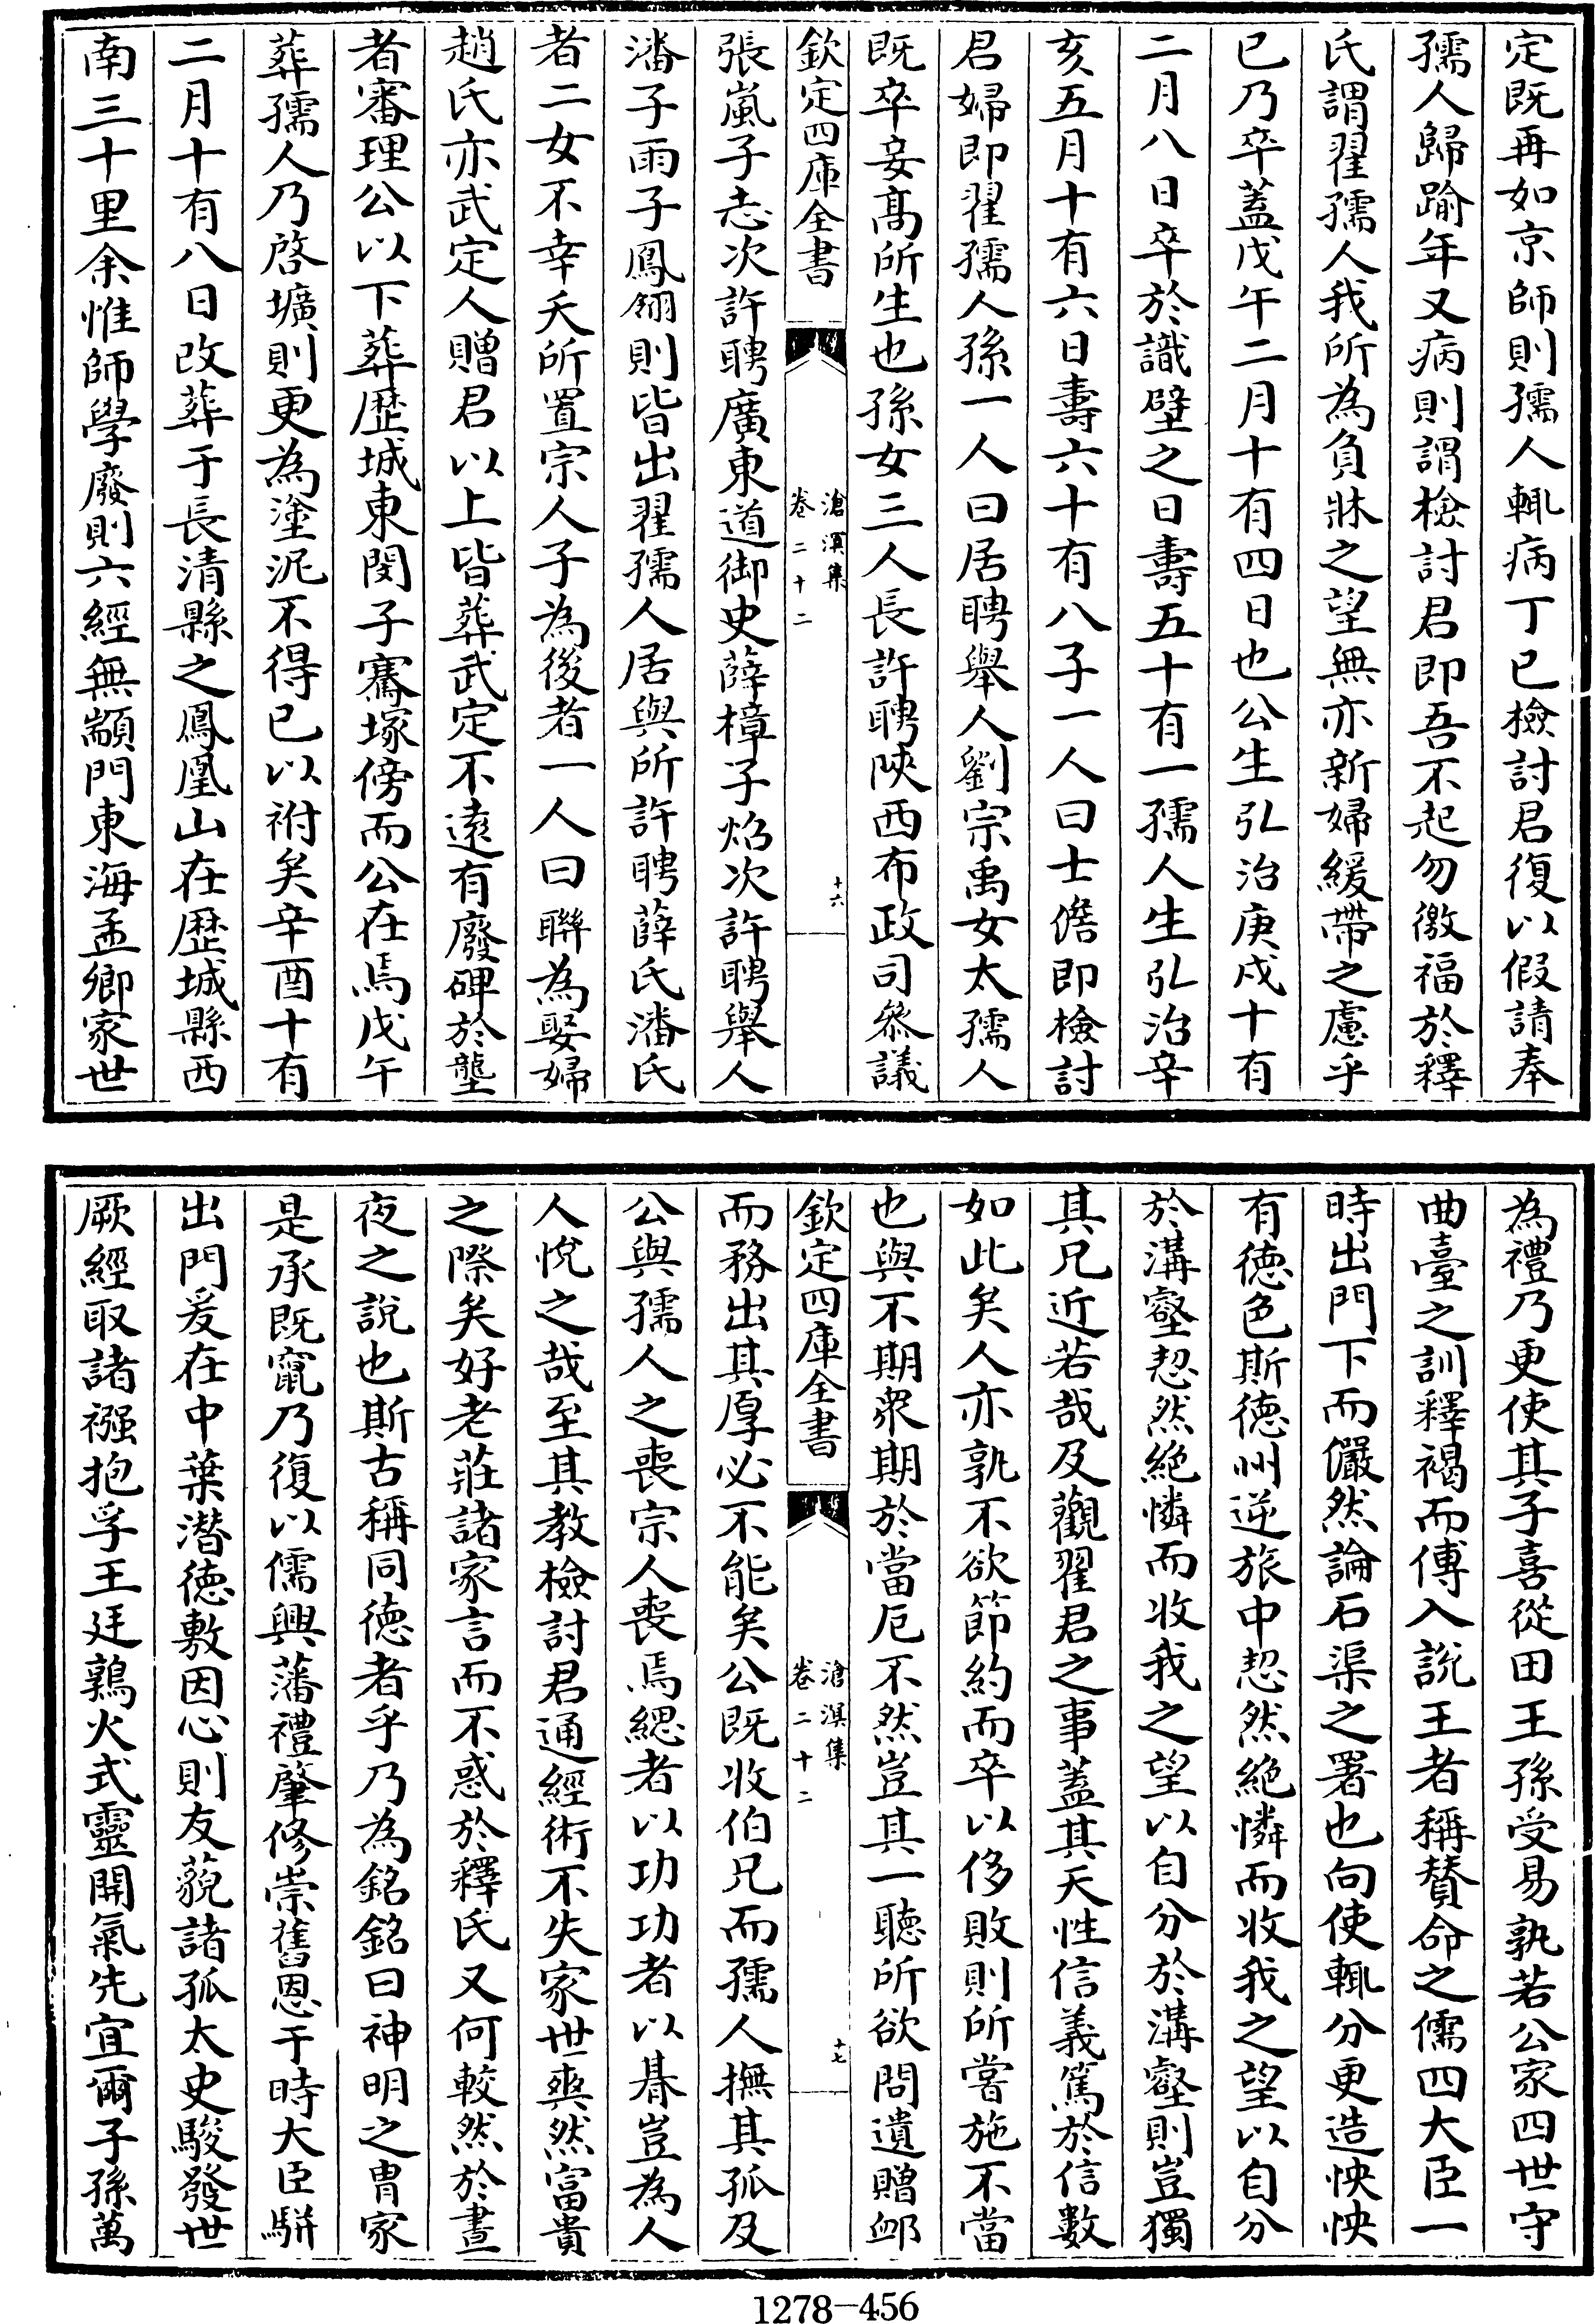 定既再如京師則孺人輒病丁已檢討君復以假請奉
孺人歸踰年又病則謂檢討君即吾不起勿徼福於釋
氏謂翟孺人我所為負牀之望無亦新婦緩帶之慮乎
已乃卒蓋戊午二月十有四日也公生弘治庚戌十有
二月八日卒於識壁之日壽五十有一孺人生弘治辛
亥五月十有六日壽六十有八子一人曰士儋即檢討
君婦即翟孺人孫一人曰居聘舉人劉宗禹女太孺人
既卒妾髙所生也孫女三人長許聘陜西布政司叅議
欽定四庫全書
滄溟集
卷二十二
十六
張嵐子志次許聘廣東道御史薛樟子焰次許聘舉人
潘子雨子鳳翎則皆出翟孺人居與所許聘薛氏潘氏
者二女不幸夭所置宗人子為後者一人曰聯為娶婦
趙氏亦武定人贈君以上皆葬武定不遠有廢碑於壟
者審理公以下葬歴城東閔子騫塚傍而公在焉戊午
葬孺人乃啓壙則更為塗泥不得已以祔矣辛酉十有
二月十有八日改葬于長清縣之鳳凰山在歴城縣西
南三十里余惟師學廢則六經無顓門東海孟卿家世
為禮乃更使其子喜從田王孫受易孰若公家四世守
曲臺之訓釋褐而傅入説王者稱賛命之儒四大臣一
時出門下而儼然論石渠之署也向使輒分更造怏怏
有徳色斯徳州逆旅中恝然絶憐而收我之望以自分
於溝壑恝然絶憐而收我之望以自分於溝壑則豈獨
其兄近若哉及觀翟君之事蓋其天性信義篤於信數
如此矣人亦孰不欲節約而卒以侈敗則所嘗施不當
也與不期衆期於當厄不然豈其一聴所欲問遺贈䘏
欽定四庫全書
滄溟集
卷二十二
十七
而務出其厚必不能矣公既收伯兄而孺人撫其孤及
公與孺人之喪宗人喪焉緦者以功功者以朞豈為人
人悅之哉至其教檢討君通經術不失家世爽然富貴
之際矣好老莊諸家言而不惑於釋氏又何較然於晝
夜之說也斯古稱同徳者乎乃為銘銘曰神明之胄家
是承既竄乃復以儒興藩禮肇修崇舊恩于時大臣駢
出門爰在中葉潛徳敷因心則友藐諸孤太史駿發世
厥經取諸襁抱孚王廷鶉火式靈開氣先宜爾子孫萬
1278-456